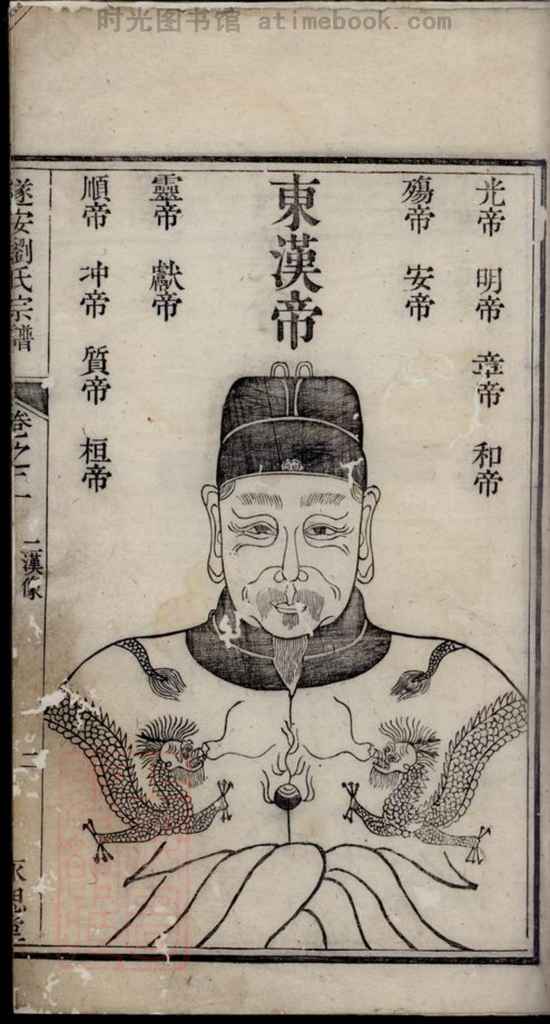 时光图书馆 atimebook.com
光帝 明帝 章帝 和帝
殤帝 安帝
東漢帝
靈帝 獻帝
順帝 冲帝 質帝 桓帝
遂安劉氏宗譜
卷之三
二漢像
二